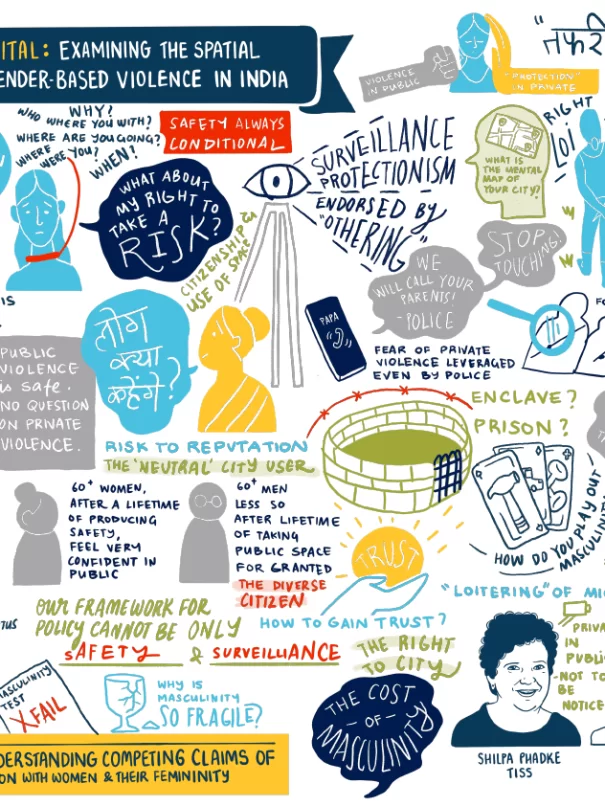 ITAL: EXAMINING THE SPATIAL
ENDER-BASED VIOLENCE IN INDIA
VIOLENCE
IN PUBLIC
"PROTECTION"
IN PRIVATE
WHY?
WHO WHERE YOU WITH?
WHERE ARE YOU GOING?
WHERE
WERE YOU?
WHEN?
SAFETY ALWAYS
CONDITIONAL
WHAT ABOUT
MY RIGHT TO
TAKE A
RISK?
SURVEILLANCE
PROTECTIONISM
ENDORSED BY
"OTHERING"
WHAT IS
THE MENTAL
MAP OF
YOUR CITY?
RIGHT
LOI
CITIZENSHIP &
USE OF SPACE
WE
WILL CALL YOUR
PARENTS!
-POLICE
STOP
TOUCHING!
IS
PUBLIC
VIOLENCE
is safe.
NO QUESTION
ON PRIVATE
VIOLENCE.
लोग
क्या
कहेंगे?
PAPA
FEAR OF PRIVATE
VIOLENCE LEVERAGED
EVEN BY POLICE
RISK TO REPUTATION
THE 'NEUTRAL' CITY USER
ENCLAVE?
PRISON?
60+ WOMEN,
AFTER A LIFETIME
OF PRODUCING
SAFETY,
FEEL VERY
CONFIDENT IN
PUBLIC
60+ MEN
LESS SO
AFTER LIFETIME
OF TAKING
PUBLIC SPACE
FOR GRANTED
THE DIVERSE
CITIZEN
TRUST
HOW TO GAIN TRUST?
HOW DO YOU PLAY OUT
MASCULINIT
"LOITERING" OF MI
OUR FRAMEWORK FOR
POLICY CANNOT BE ONLY
SAFETY & SURVEILLANCE
THE RIGHT
TO CITY
PRIVA
IN
PUBLI
-NOT TO
BE
NOTICE
MASCULINITY
TEST
XFAIL
WHY IS
MASCULINITY
SO FRAGILE?
THE COST
-OF-
MASCULINITY
SHILPA PHADKE
TISS
DERSTANDING COMPETING CLAIMS OF
ON WITH WOMEN & THEIR FEMININITY